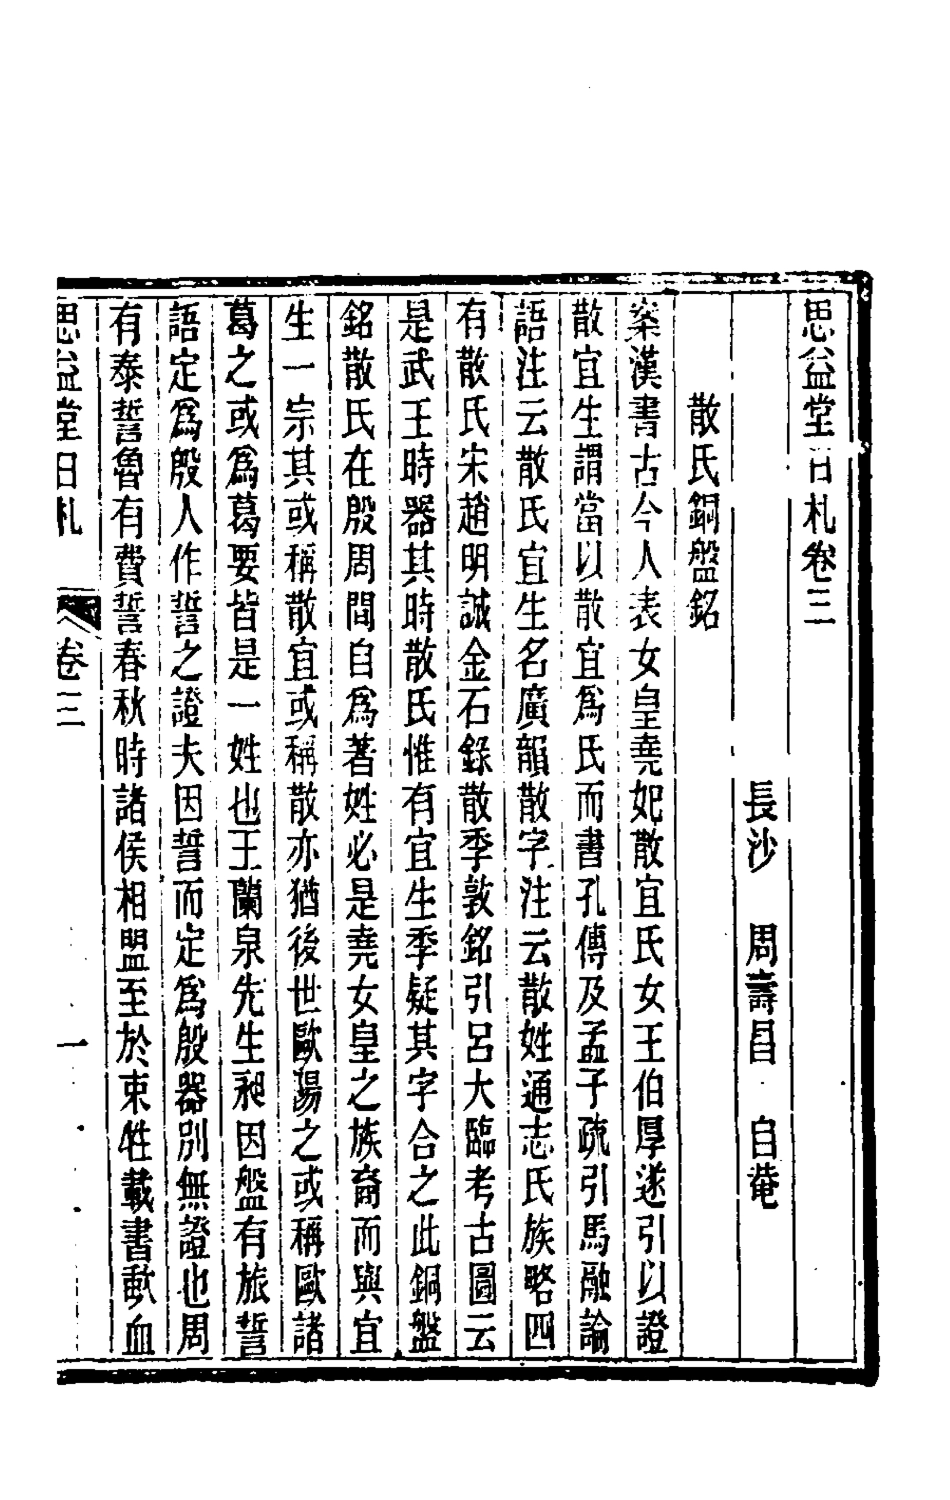 思益堂日札卷三
長沙　周壽昌　自菴
散氏銅盤銘
案漢書古今人表女皇堯妃散宜氏女王伯厚遂引以證
散宜生謂當以散宜爲氏而書孔傳及孟子疏引馬融論
語注云散氏宜生名廣韻散字注云散姓通志氏族略四
有散氏宋趙明誠金石錄散季敦銘引呂大臨考古圖云
是武王時器其時散氏惟有宜生季疑其字合之此銅盤
銘散氏在殷周間自爲著姓必是堯女皇之族裔而與宜
生一宗其或稱散宜或稱散亦猶後世歐陽之或稱歐諸
葛之或爲葛要皆是一姓也王蘭泉先生昶因盤有旅誓
語定爲殷人作誓之證夫因誓而定爲殷器別無證也周
有泰誓魯有費誓春秋時諸侯相盟至於束牲載書歃血
思益堂日札　卷三　一